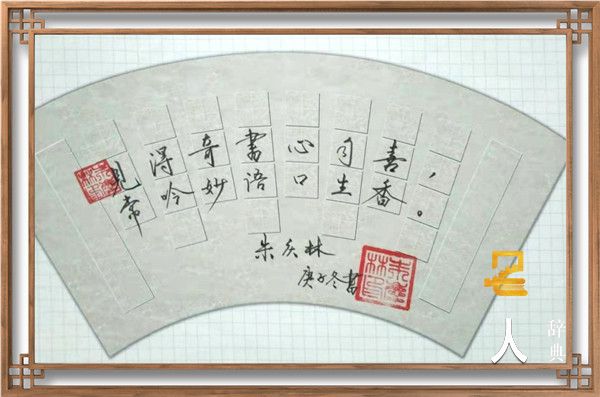 见得奇書心自喜，
常吟妙语口生香。
朱庆林
庚子冬書
名人
辞典